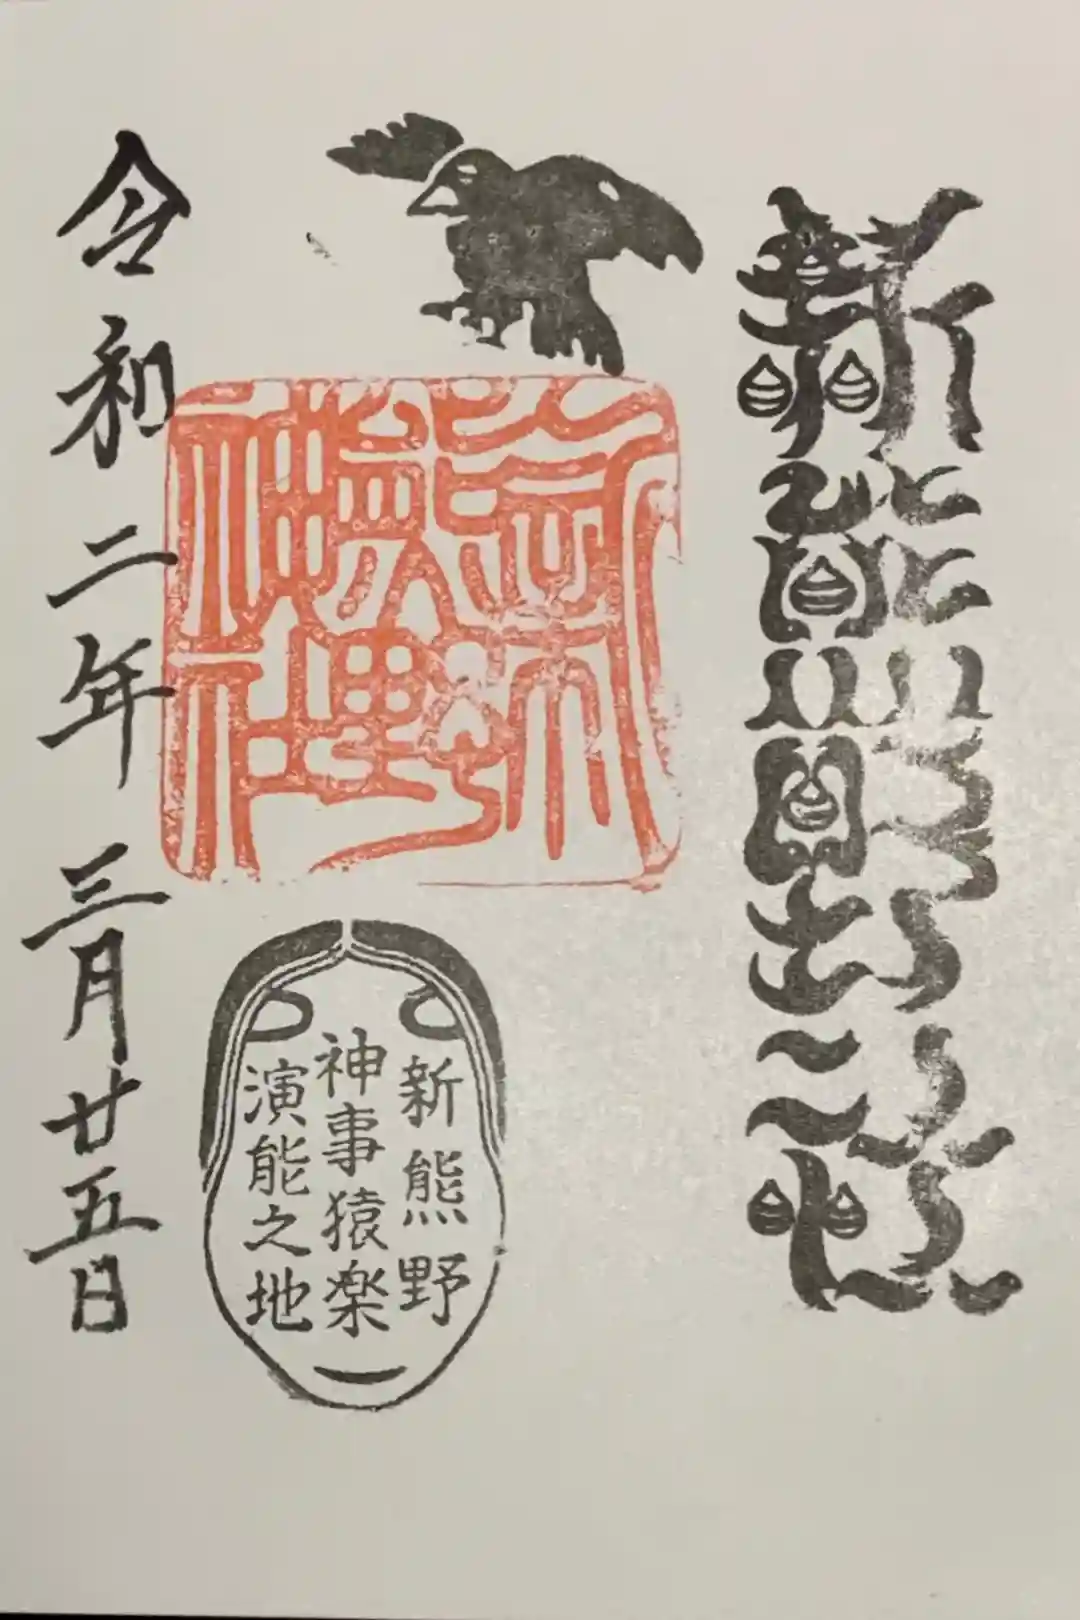 新熊野
新熊野神社
新熊野
神事猿楽
演能之地
令和二年三月廿五日